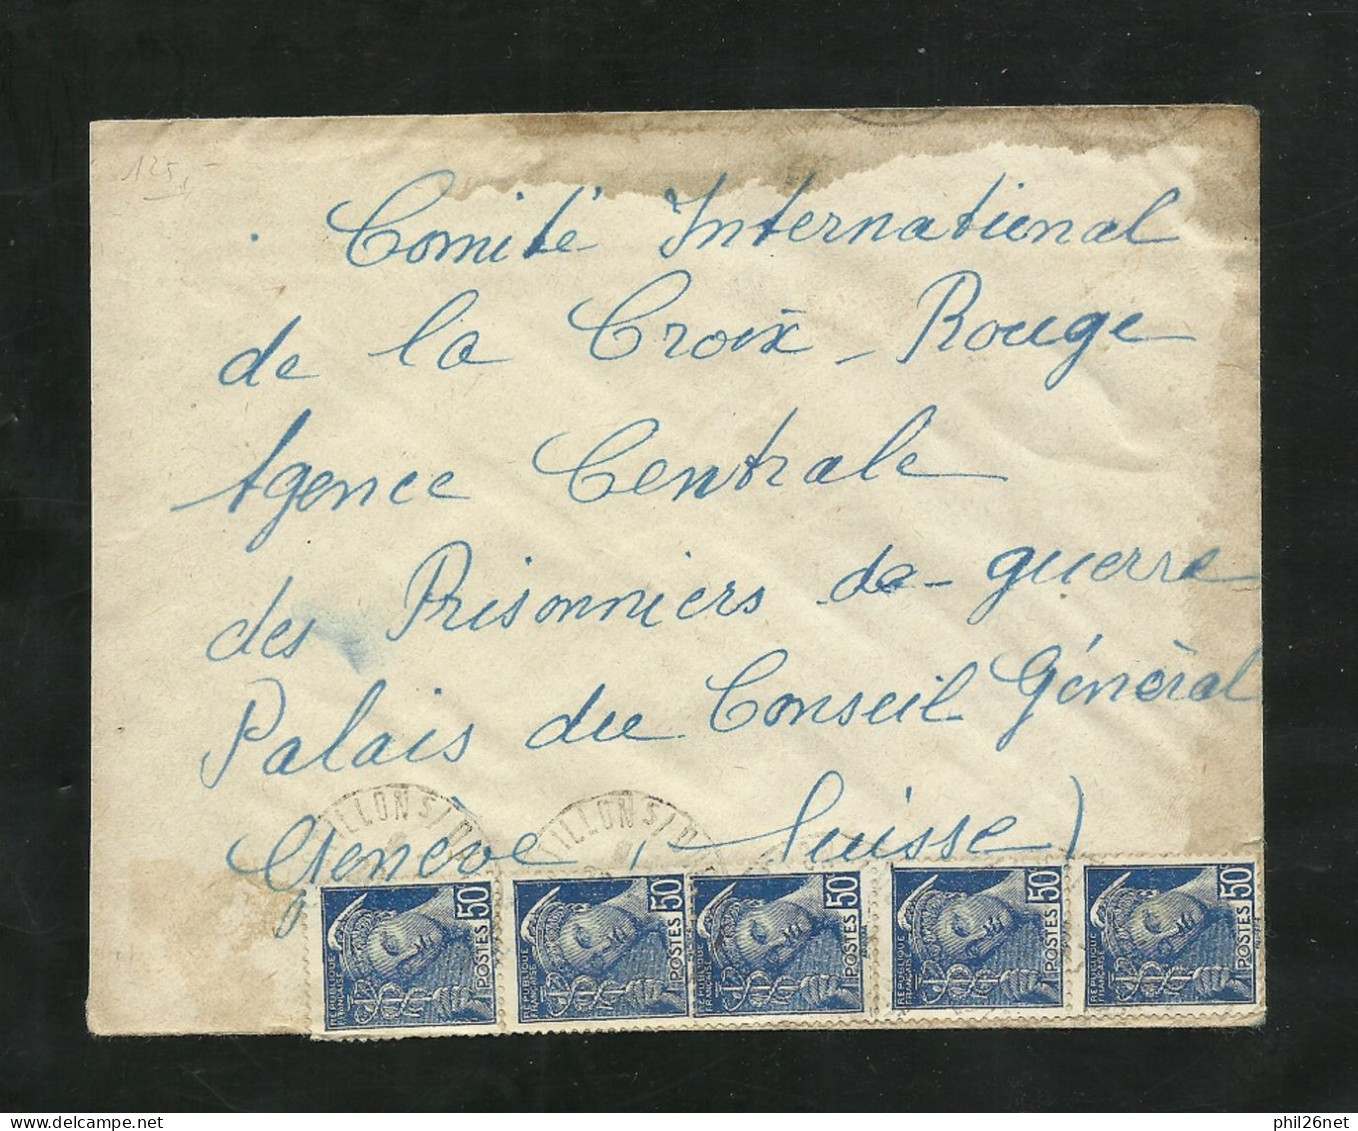 125,-
Comité International
de la Croix-Rouge
Agence Centrale
des Prisonniers de guerre
Palais du Conseil Général
Genève, Suisse)
ILLON S/
ILLON S/
50 POSTES RÉPUBLIQUE FRANÇAISE
50 POSTES RÉPUBLIQUE FRANÇAISE
50 POSTES RÉPUBLIQUE FRANÇAISE
50 POSTES RÉPUBLIQUE FRANÇAISE
50 POSTES RÉPUBLIQUE FRANÇAISE
phil26net